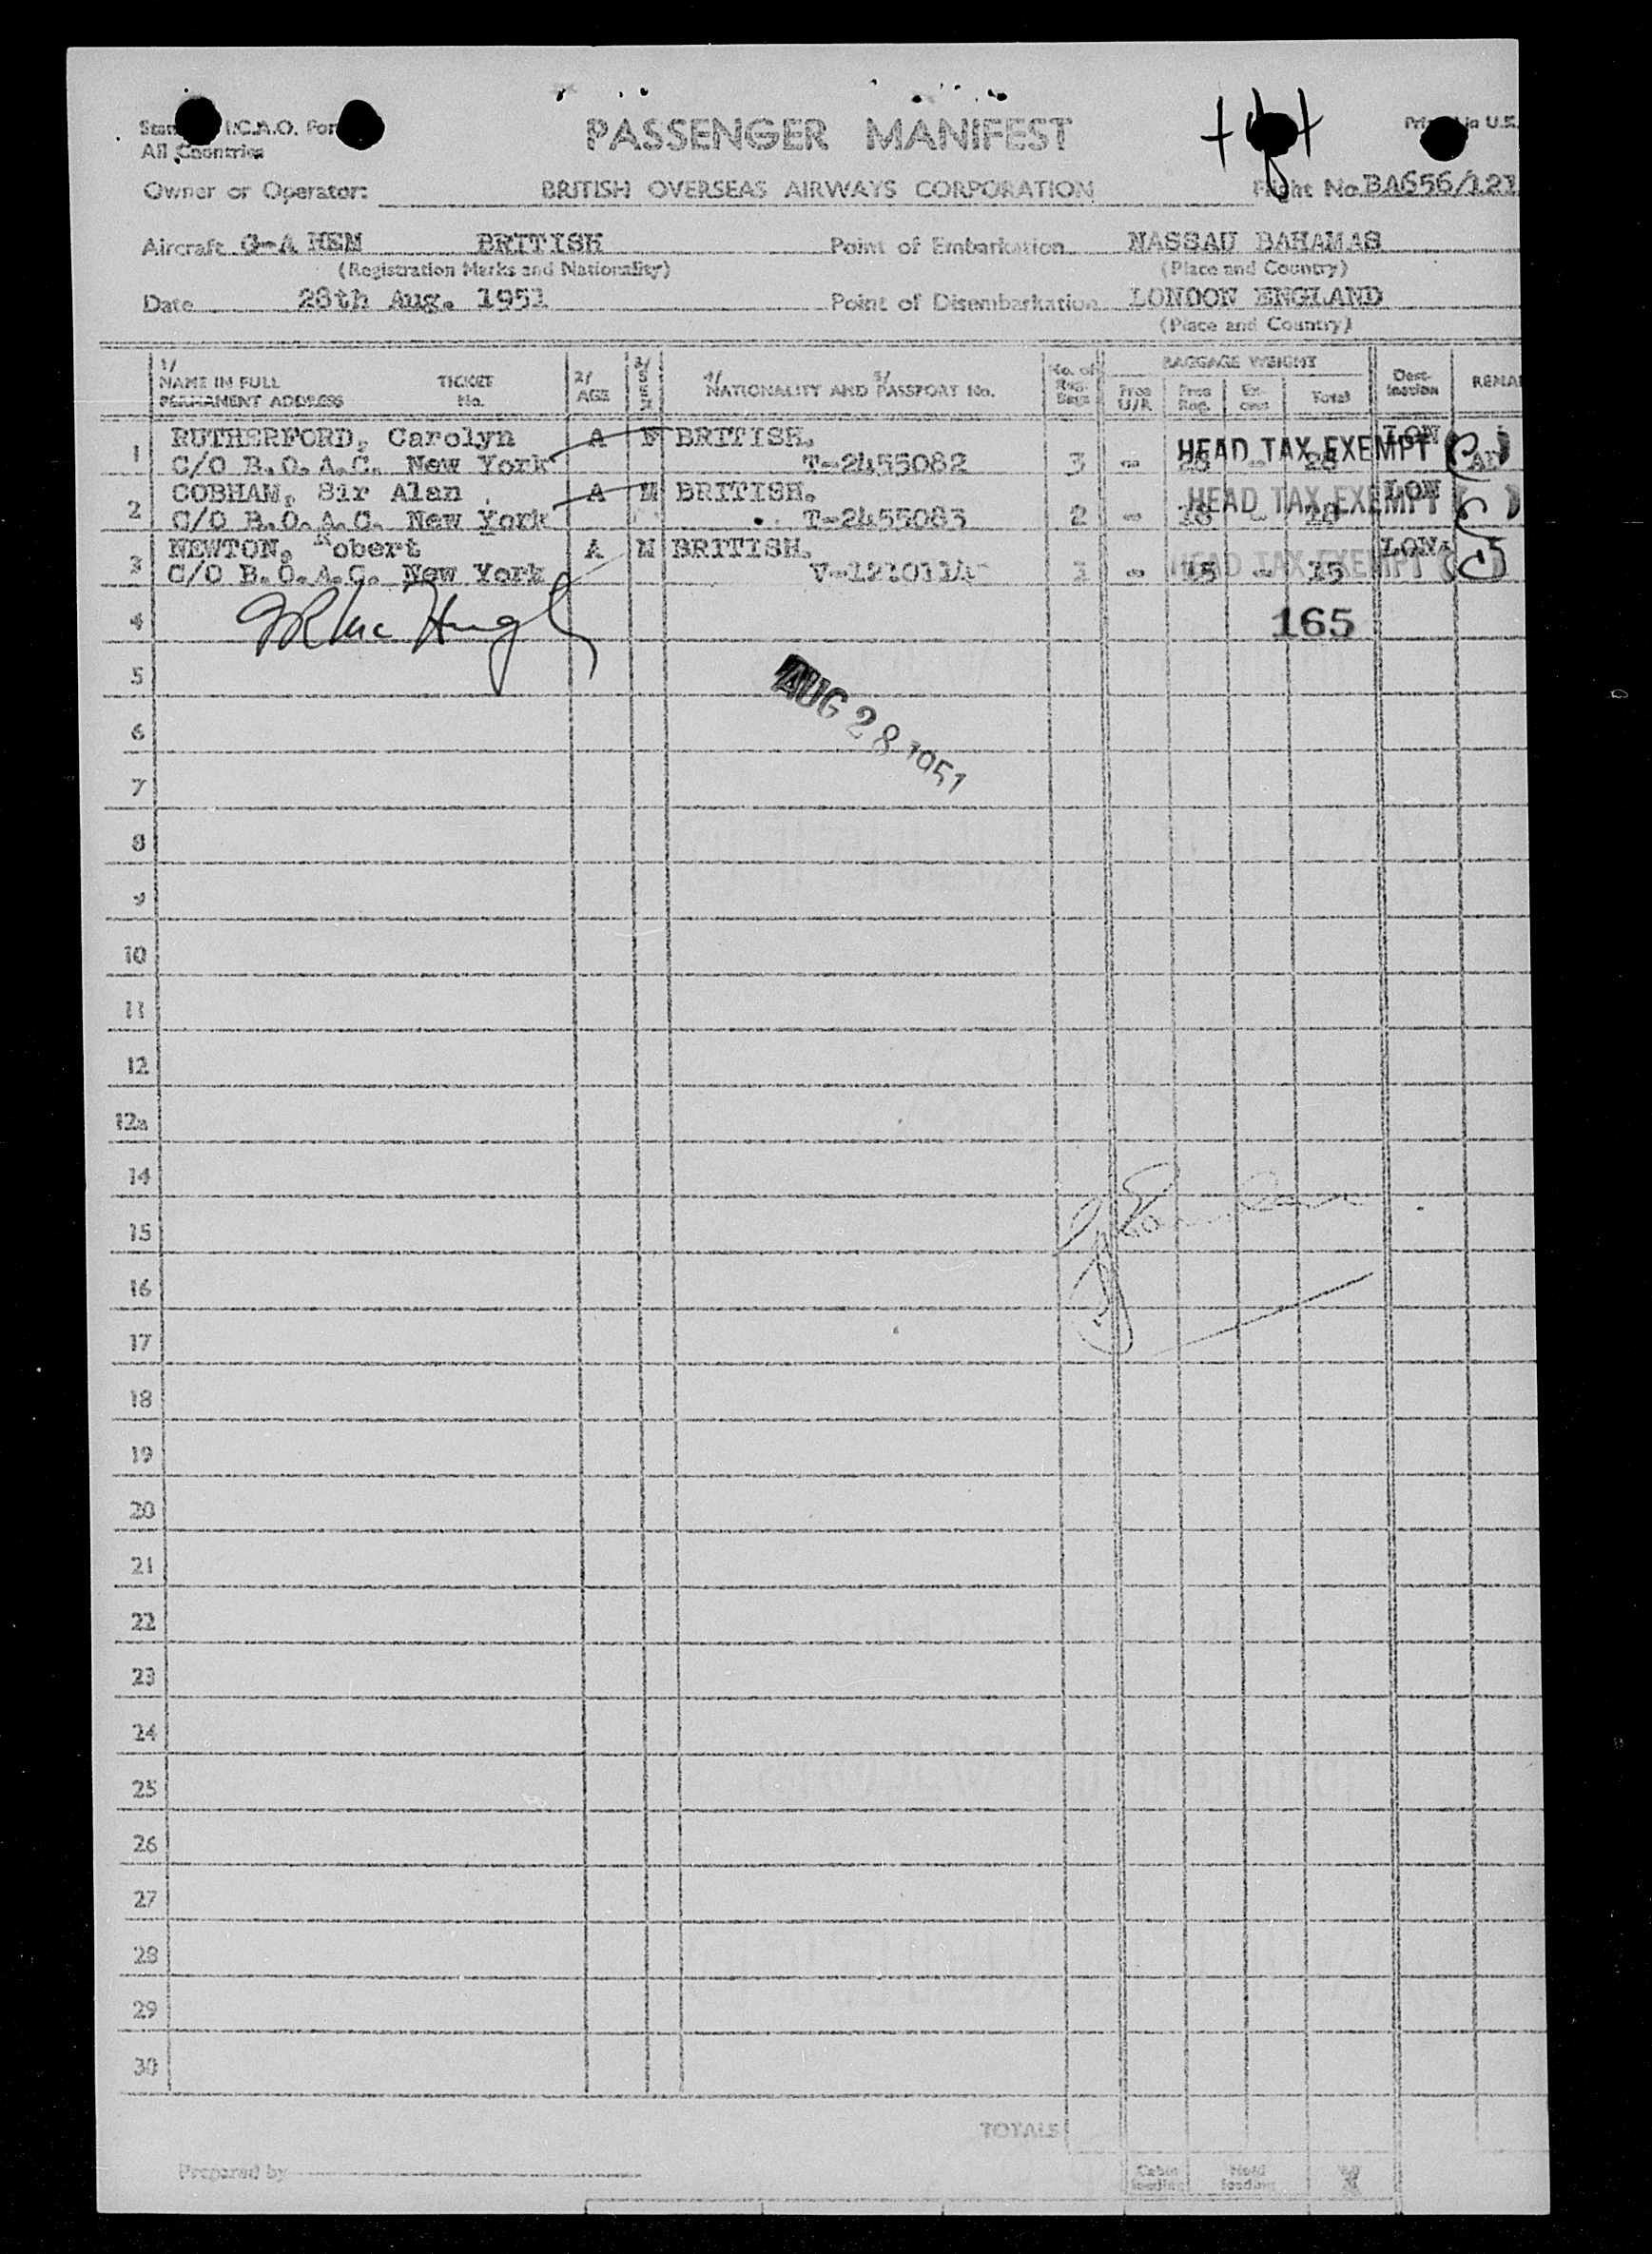 I.C.A.O. For
All Countries
PASSENGER MANIFEST
in U.K.
Owner or Operator: BRITISH OVERSEAS AIRWAYS CORPORATION Flight No. BA656/121
Aircraft G-A HEM BRITISH Point of Embarkation NASSAU BAHAMAS
(Registration Marks and Nationality) (Place and Country)
Date 28th Aug. 1951 Point of Disembarkation LONDON ENGLAND
(Place and Country)
1/ NAME IN FULL PERMANENT ADDRESS TICKET No. 2/ AGE 3/ SEX 4/ NATIONALITY AND 5/ PASSPORT No. No. of Reg. Bags BAGGAGE WEIGHT Free U/R Free Reg. Ex- cess Total Dest- ination REMA
1 RUTHERFORD, Carolyn A F BRITISH. LON
C/O B.O.A.C. New York T-2455082 3 - 28 - 28 HEAD TAX EXEMPT
2 COBHAM, Sir Alan A M BRITISH. LON
C/O B.O.A.C. New York T-2455083 2 - 18 - 18 HEAD TAX EXEMPT
3 NEWTON, Robert A M BRITISH. LON
C/O B.O.A.C. New York 1 - 15 - 15 HEAD TAX EXEMPT
4 165
5
AUG 28 1951
6
7
8
9
10
11
12
12a
14
15
16
17
18
19
20
21
22
23
24
25
26
27
28
29
30
TOTALS
Prepared by
Cabin loading Hold loading